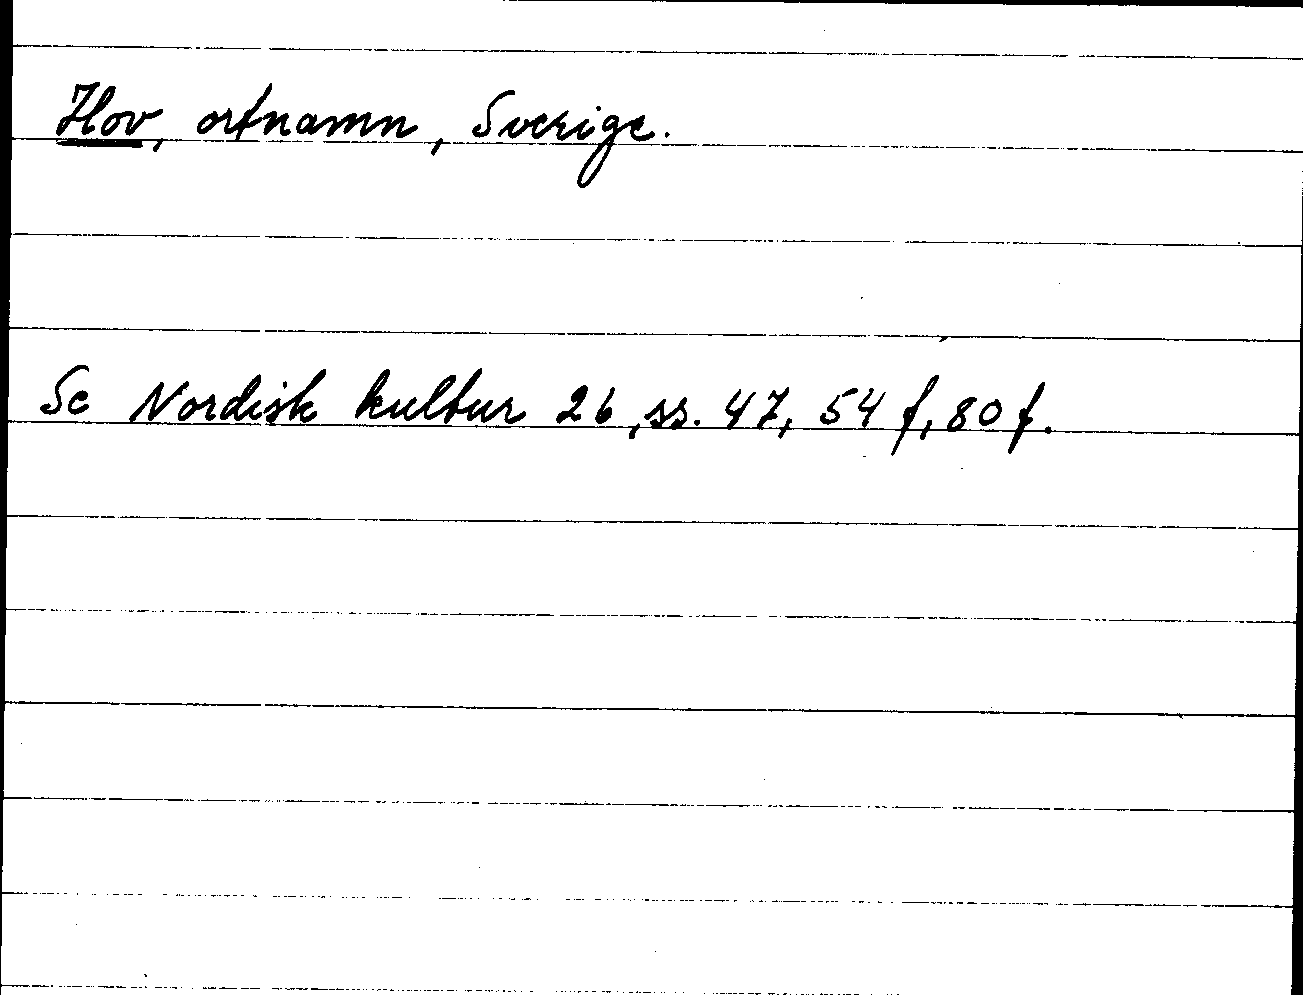 Hov, ortnamn, Sverige.
Se Nordisk kultur 26, ss. 47, 54 f, 80 f.